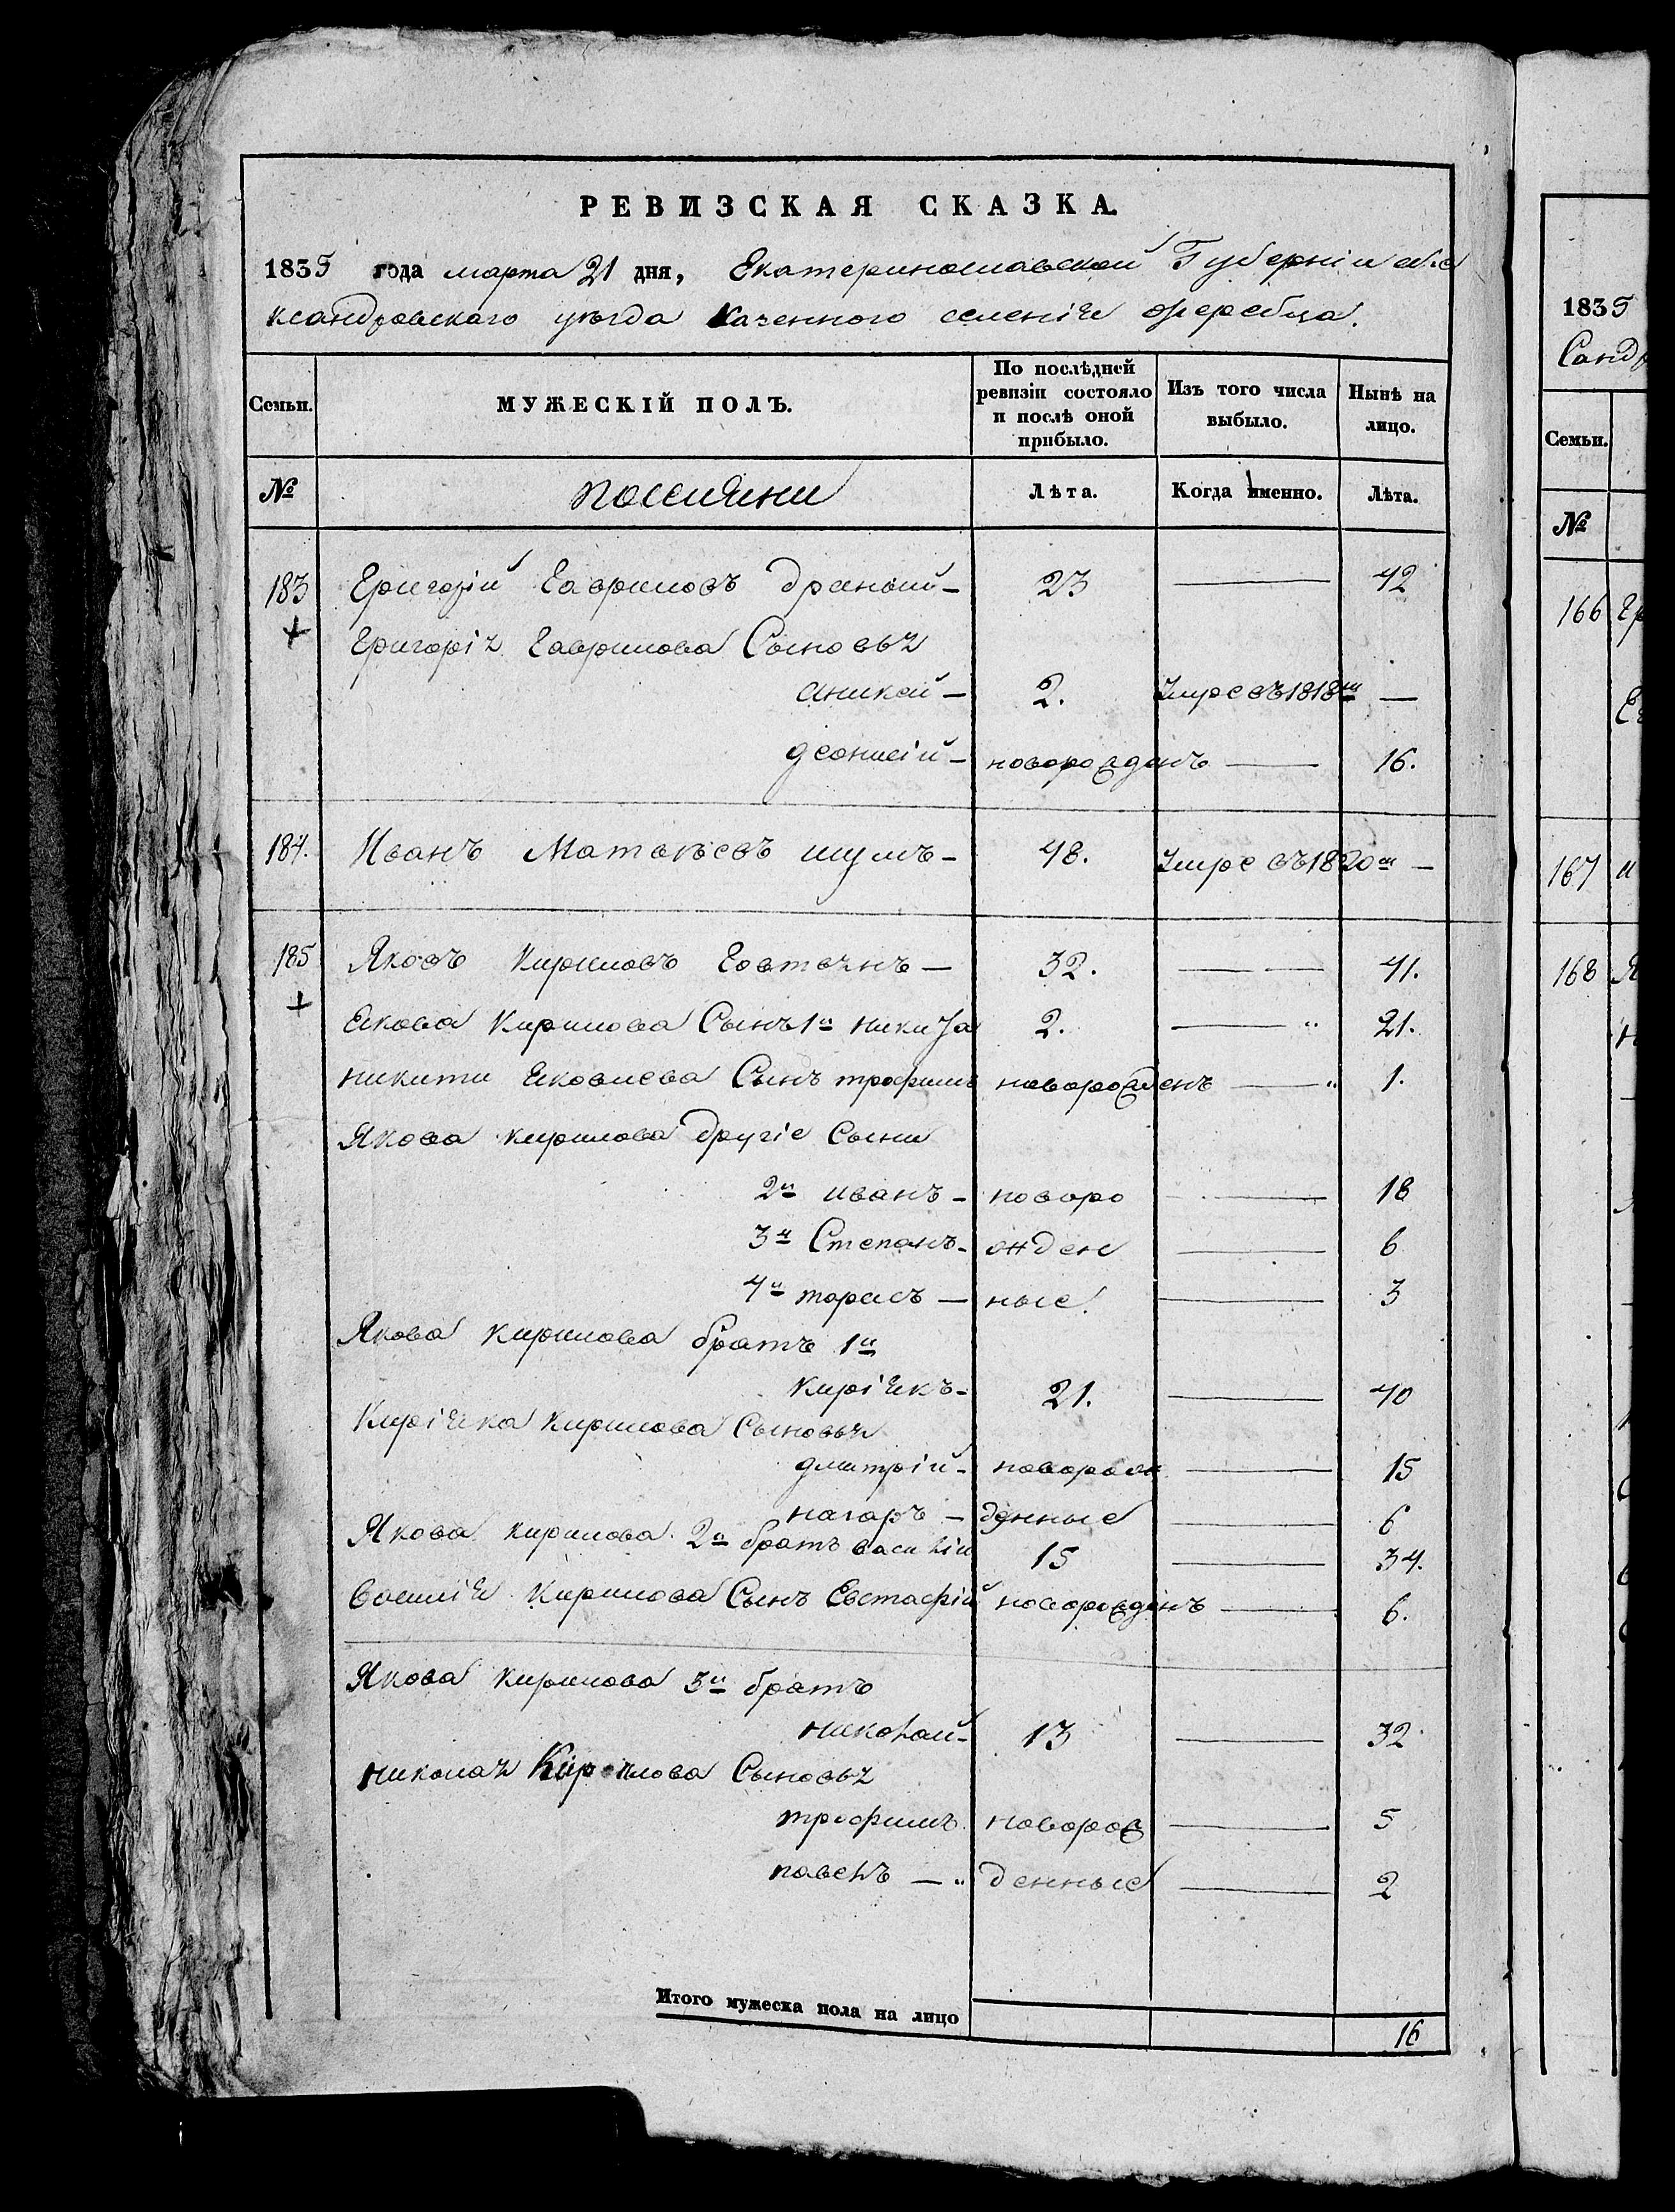 РЕВИЗСКАЯ СКАЗКА.
1835 года марта 21 дня, Екатеринославской Губерніи але
ксандровскаго уѣзда Казенного селенія жеребца.
Семьи. МУЖЕСКІЙ ПОЛЪ. По послѣдней ревизіи состояло и послѣ оной прибыло. Изъ того числа выбыло. Нынѣ на лицо.
№ поселяни Лѣта. Когда именно. Лѣта.
183 Григорій Гавриловъ драный - 23 — 42
Григорія Гаврилова Сыновья
аникей - 2. Умре въ 1818м —
деонисій - новорожденъ — 16.
184. Иванъ Матвѣевъ шумъ - 48. Умре въ 1820м —
185 Яковъ Кириловъ Говтвянъ — 32. — — 41.
Якова Кирилова Сынъ 1й никита 2. — " 21.
никити Яковлева Сынъ трофимъ новорожденъ — " 1.
Якова кирилова другіе Сыни
2й иванъ - новоро — 18
3й Степанъ - жден — 6
4й тарасъ — ные. — 3
Якова кирилова братъ 1й
киріякъ - 21. — 40
Киріяка Кирилова Сыновья
дмитрій - новорож — 15
назаръ - денные — 6
Якова кирилова 2й братъ василій 15 — 34.
Василія Кирилова Сынъ Евстафій новорожденъ — 6.
Якова кирилова 3й братъ
николай - 13 — 32.
николая Кирилова Сыновья
трофимъ новорож — 5
павелъ — " денные — 2
Итого мужеска пола на лицо 16
1835
Санд
Семьи.
№
166 Гр
167 и
168 Я